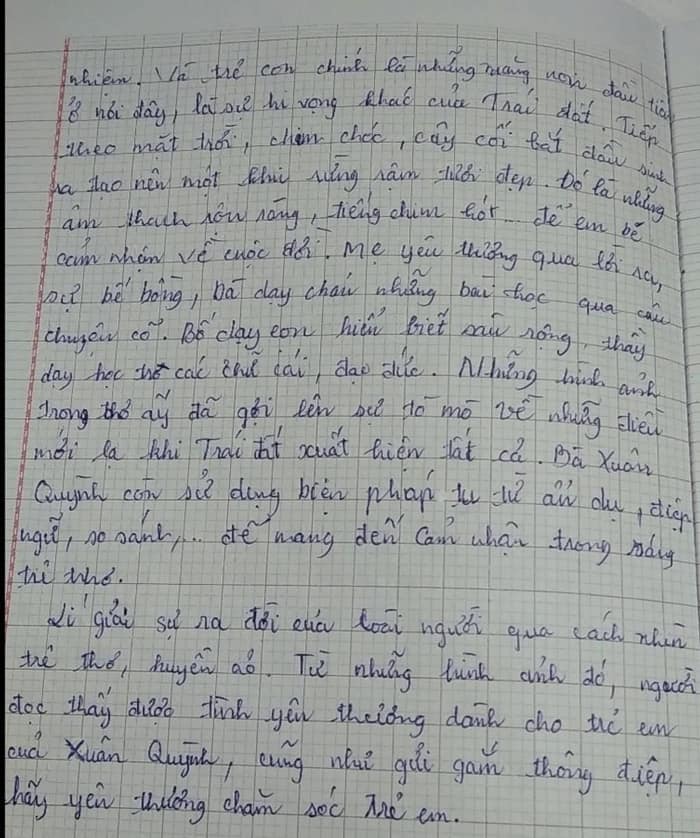 nhiên. Và trẻ con chính là những mầm non đầu tiên
ở nơi đây, là sự hi vọng khác của Trái đất. Tiếp
theo mặt trời, chim chóc, cây cối bắt đầu sinh
ra tạo nên một khu rừng rậm tươi đẹp. Đó là những
âm thanh sôn sàng, tiếng chim hót... để em bé
cảm nhận về cuộc đời. Mẹ yêu thương qua lời ru,
sự bế bồng, bà dạy cháu những bài học qua câu
chuyện cổ. Bố dạy con hiểu biết sâu rộng, thầy
dạy học các chữ cái, đạo đức. Những hình ảnh
trong thơ ấy đã gợi lên sự tò mò về những điều
mới lạ khi Trái đất xuất hiện tất cả. Bà Xuân
Quỳnh còn sử dụng biện pháp tu từ ẩn dụ, điệp
ngữ, so sánh,... để mang đến cảm nhận trong sáng
trẻ thơ.
Lí giải sự ra đời của loài người qua cách nhìn
trẻ thơ, huyền ảo. Từ những hình ảnh đó, người
đọc thấy được tình yêu thương dành cho trẻ em
của Xuân Quỳnh, cũng như gửi gắm thông điệp,
hãy yêu thương chăm sóc trẻ em.